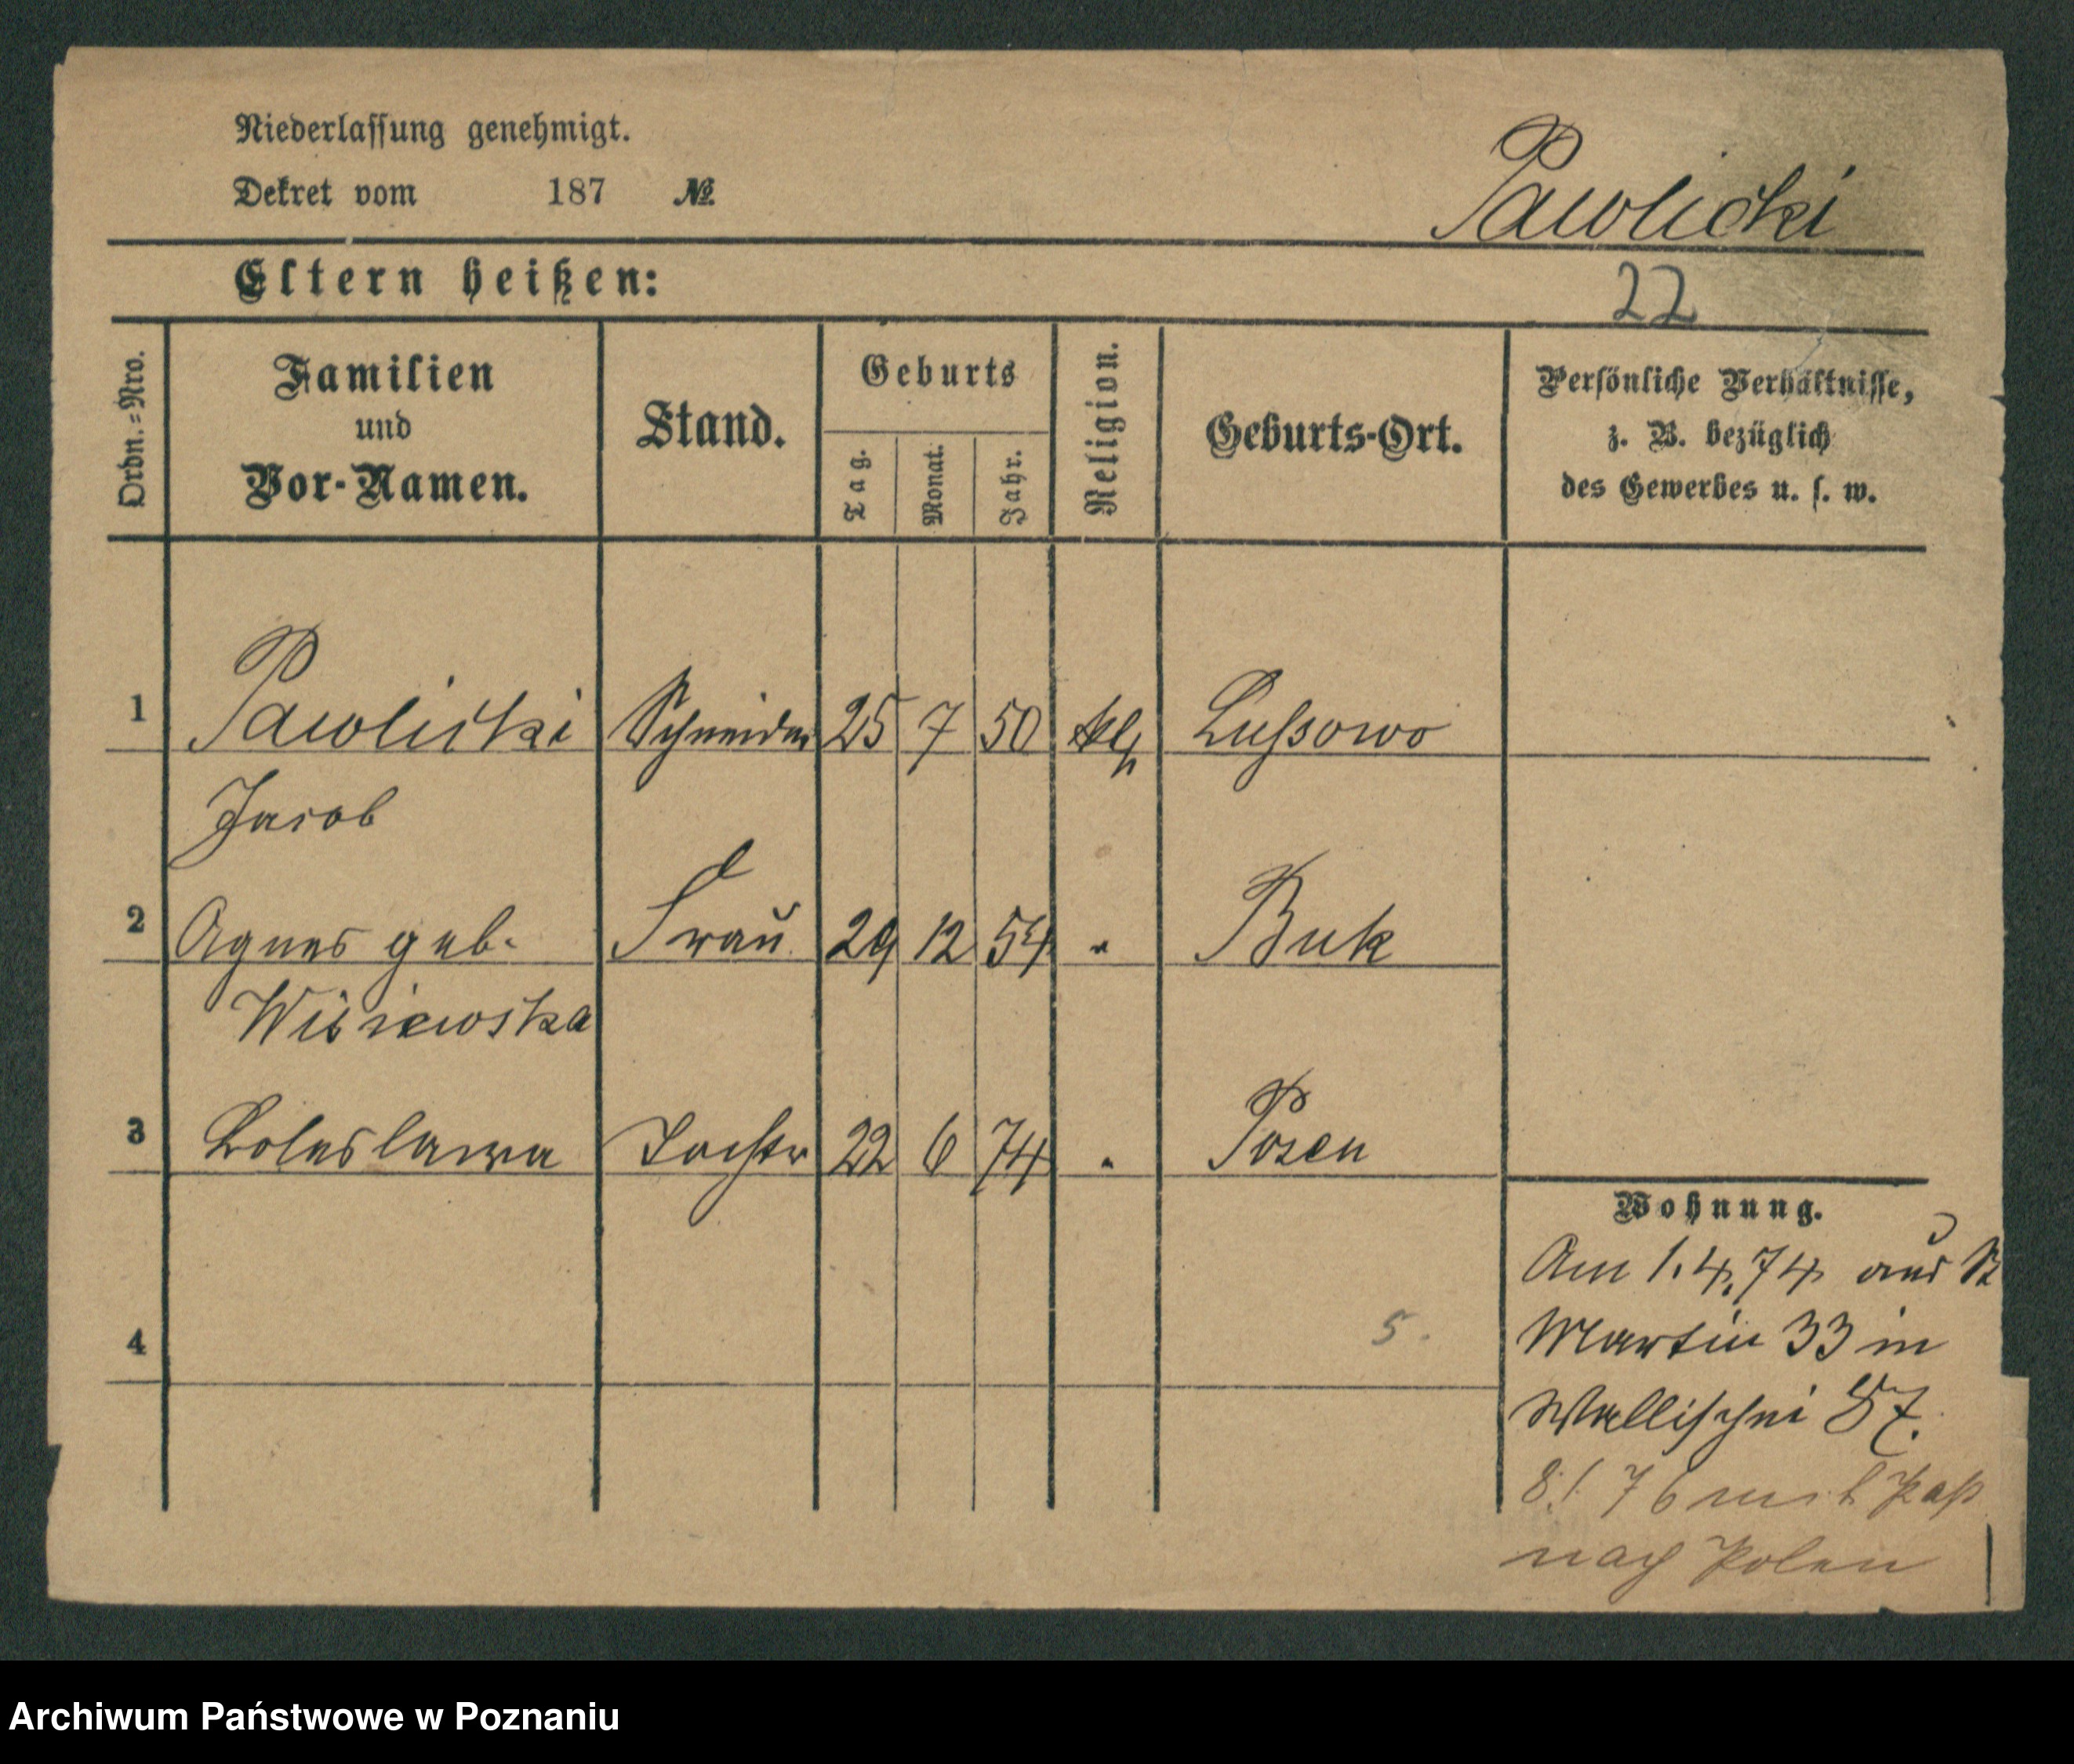 Niederlassung genehmigt.
Dekret vom 187 №
Pawlicki
Eltern heißen:
22
Ordn.=Nro.
Familien
und
Vor-Namen.
Stand.
Geburts
Tag.
Monat.
Jahr.
Religion.
Geburts-Ort.
Persönliche Verhältnisse,
z. B. bezüglich
des Gewerbes u. s. w.
1 Pawlicki Schneider 25 7 50 Lussowo
Jacob
2 Agnes geb. Frau 29 12 54 " Buk
Wisiewska
3 Boleslawa Tochter 22 6 74 " Posen
Wohnung.
Am 1.4.74 aus St
4 5.
Martin 33 in
Wallischei 87.
8./. 76 mit Paß
nach Polen
Archiwum Państwowe w Poznaniu